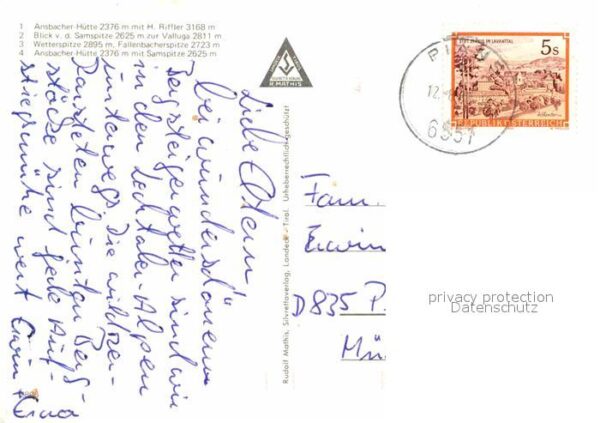 1 Ansbacher-Hütte 2376 m mit H. Riffler 3168 m
2 Blick v. d. Samspitze 2625 m zur Valluga 2811 m
3 Wetterspitze 2895 m, Fallenbacherspitze 2723 m
4 Ansbacher-Hütte 2376 m mit Samspitze 2625 m
R. MATHIS
Liebe
bei wunderschönem
Bergsteigerwetter sind wir
in den Lechtaler-Alpen
unterwegs. Die wildzer-
bunten Berg-
stöcke sind jede Auf-
stiegsmühe wert
Erwin +
Rudolf Mathis, Silvrettaverlag, Landeck - Tirol. Urheberrechtlich geschützt!
5s
REPUBLIK ÖSTERREICH
12.
6551
Fam.
Erwin
D835 P
Mü
privacy protection
Datenschutz